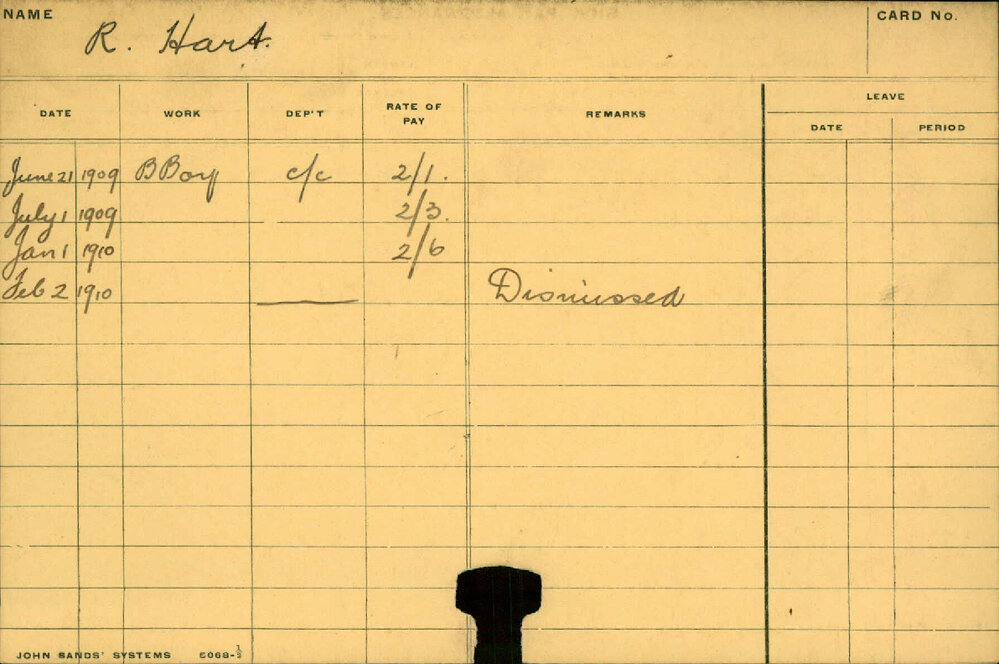 NAME R. Hart. CARD No.
DATE WORK DEP'T RATE OF PAY REMARKS LEAVE
DATE PERIOD
June 21 1909 B Boy c/c 2/1.
July 1 1909 2/3.
Jan 1 1910 2/6
Feb 2 1910 Dismissed
JOHN SANDS' SYSTEMS 6068-½